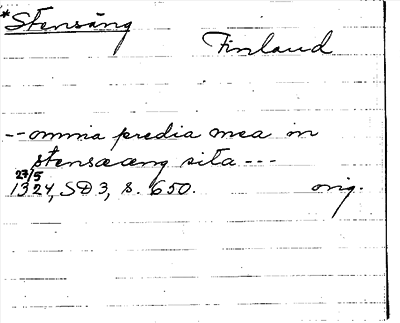 *Stensäng
Finland
-- omnia predia mea in
stensææng sita ---
27/5
1324, SD 3, s. 650. orig.